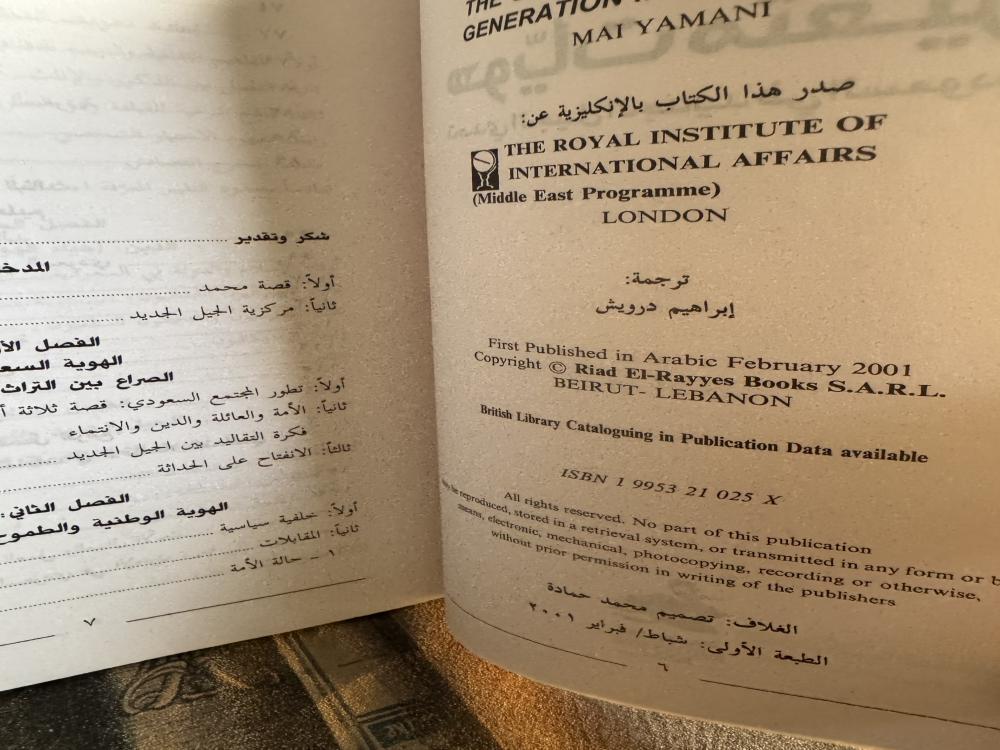 GENERATION
MAI YAMANI
صدر هذا الكتاب بالإنكليزية عن:
THE ROYAL INSTITUTE OF
INTERNATIONAL AFFAIRS
(Middle East Programme)
LONDON
ترجمة:
إبراهيم درويش
First Published in Arabic February 2001
Copyright © Riad El-Rayyes Books S.A.R.L.
BEIRUT- LEBANON
British Library Cataloguing in Publication Data available
ISBN 1 9953 21 025 X
All rights reserved. No part of this publication
be reproduced, stored in a retrieval system, or transmitted in any form or
means, electronic, mechanical, photocopying, recording or otherwise,
without prior permission in writing of the publishers
الغلاف: تصميم محمد حمادة
الطبعة الأولى: شباط/ فبراير ٢٠٠١
٦
شكر وتقدير
أولاً: قصة محمد
ثانياً: مركزية الجيل الجديد
الفصل
الهوية
الصراع بين التراث
أولاً: تطور المجتمع السعودي: قصة ثلاثة
ثانياً: الأمة والعائلة والدين والانتماء
فكرة التقاليد بين الجيل الجديد
ثالثاً: الانفتاح على الحداثة
الفصل الثاني:
الهوية الوطنية والطموح
أولاً: خلفية سياسية
ثانياً: المقابلات
١ - حالة الأمة
٧